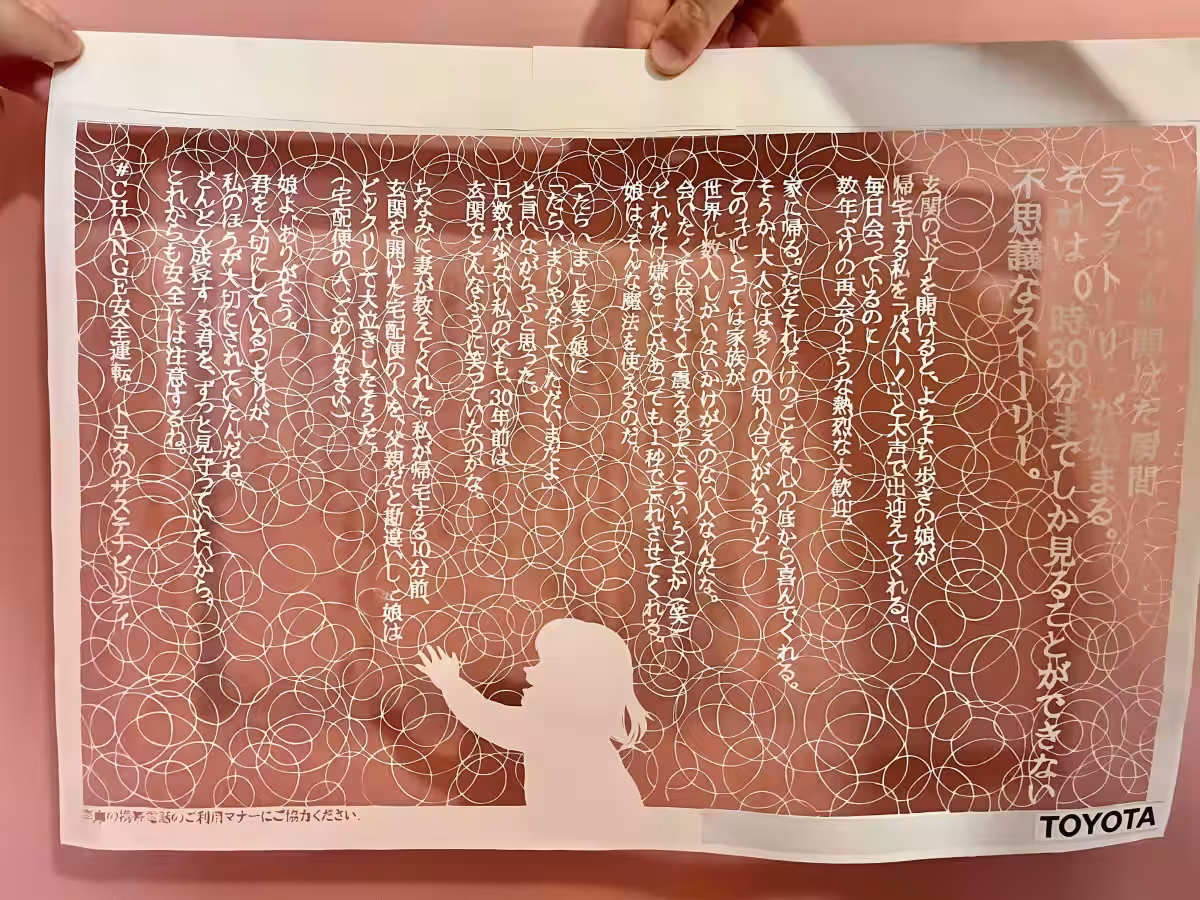 この 開けた瞬間
ラブストーリーが始まる。
それは 0時30分までしか見ることができない
不思議なストーリー。
玄関のドアを開けると、よちよち歩きの娘が
帰宅する私を「パパー！」と大声で出迎えてくれる。
毎日会っているのに
数年ぶりの再会のような熱烈な大歓迎。
家に帰る。ただそれだけのことを、心の底から喜んでくれる。
そうか、大人には多くの知り合いがいるけど
この子にとっては家族が
世界に数人しかいないかけがえのない人なんだな。
会いたくて会いたくて震えるって、こういうことか（笑）
どれだけ嫌なことがあっても1秒で忘れさせてくれる。
娘は、そんな魔法を使えるのだ。
「たらいま」と笑う娘に
「たらいまじゃなくて、ただいまだよ」
と言いながらふと思った。
口数が少ない私の父も、30年前は
玄関でこんなふうに笑っていたのかな。
ちなみに妻が教えてくれた。私が帰宅する10分前、
玄関を開けた宅配便の人を、父親だと勘違いして娘は
ビックリして大泣きしたそうだ。
（宅配便の人、ごめんなさい）
娘よ、ありがとう。
君を大切にしているつもりが、
私のほうが大切にされていたんだね。
どんどん成長する君を、ずっと見守っていたいから。
これからも安全には注意するね。
#CHANGE安全運転 トヨタのサステナビリティ
車内の携帯電話のご利用マナーにご協力ください。
TOYOTA